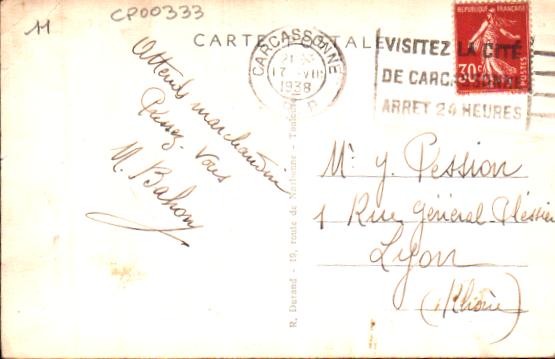 11
CP00333
CARTE POSTALE
CARCASSONNE
17 - VIII
1938
RÉPUBLIQUE FRANÇAISE
30c
POSTES
VISITEZ LA CITÉ
DE CARCASSONNE
ARRET 24 HEURES
Attends marchandise
Pressez-Vous
M.
R. Durand - 19, route de Narbonne - Toulouse
Mr J. Pession
1 Rue Général Plessier
Lyon
(Rhône)